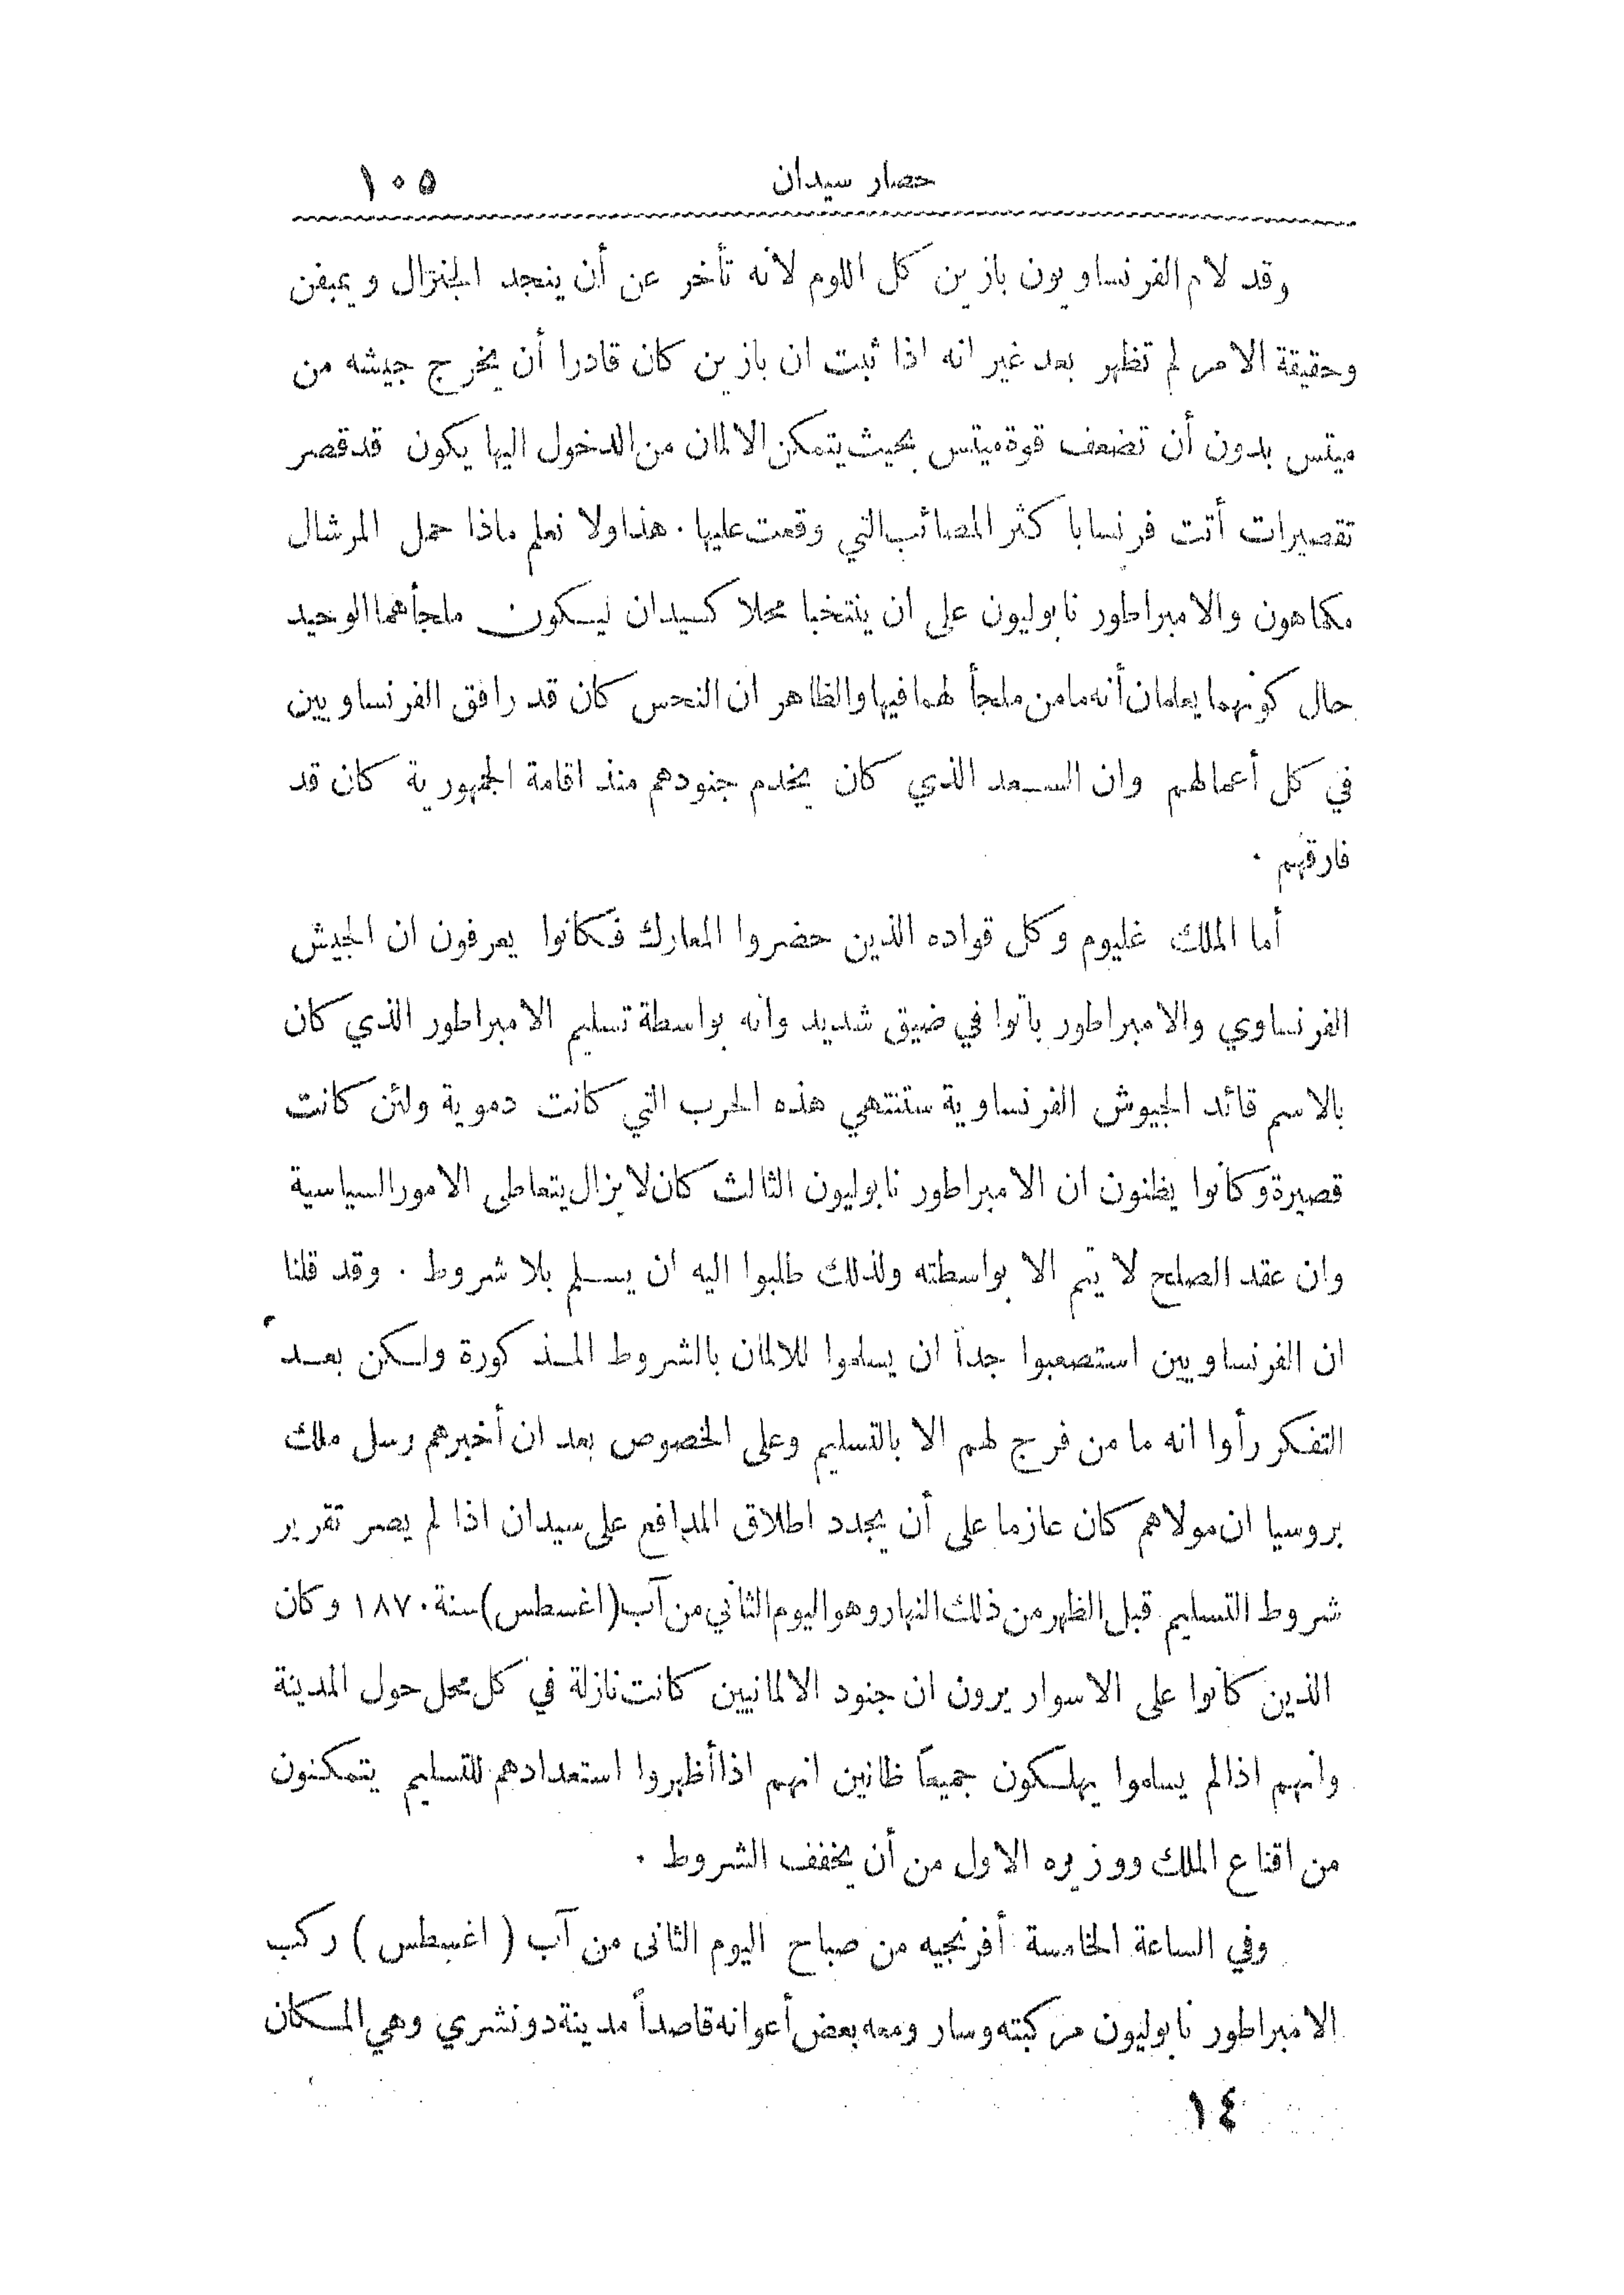 حصار سيدان ١٠٥
وقد لام الفرنساويون بازين كل اللوم لانه تأخر عن أن ينجد الجنزال ويمبفن
وحقيقة الامر لم تظهر بعد غير انه اذا ثبت ان بازين كان قادرا أن يخرج جيشه من
ميتس بدون أن تضعف قوة ميتس بحيث يتمكن الالمان من الدخول اليها يكون قد قصر
تقصيرات أتت فرنسا با كثر المصائب التي وقعت عليها . هذا ولا نعلم ماذا حمل المرشال
مكماهون والامبراطور نابوليون على ان ينتخبا محلا كسيدان ليكون ملجأهما الوحيد
حال كونهما يعلمان أنه ما من ملجأ لهما فيها والظاهر ان النحس كان قد رافق الفرنساويين
في كل أعمالهم وان السعد الذي كان يخدم جنودهم منذ اقامة الجمهورية كان قد
فارقهم .
أما الملك غليوم وكل قواده الذين حضروا المعارك فكانوا يعرفون ان الجيش
الفرنساوي والامبراطور باتوا في ضيق شديد وانه بواسطة تسليم الامبراطور الذي كان
بالاسم قائد الجيوش الفرنساوية ستنتهي هذه الحرب التي كانت دموية ولئن كانت
قصيرة وكانوا يظنون ان الامبراطور نابوليون الثالث كان لا يزال يتعاطى الامور السياسية
وان عقد الصلح لا يتم الا بواسطته ولذلك طلبوا اليه ان يسلم بلا شروط . وقد قلنا
ان الفرنساويين استصعبوا جداً ان يسلموا للالمان بالشروط المذكورة ولكن بعد
التفكر رأوا انه ما من فرج لهم الا بالتسليم وعلى الخصوص بعد ان أخبرهم رسل ملك
بروسيا ان مولاهم كان عازما على أن يجدد اطلاق المدافع على سيدان اذا لم يصر تقرير
شروط التسليم قبل الظهر من ذلك النهار وهو اليوم الثاني من آب (اغسطس) سنة ١٨٧٠ وكان
الذين كانوا على الاسوار يرون ان جنود الالمانيين كانت نازلة في كل محل حول المدينة
وانهم اذا لم يسلموا يهلكون جميعاً ظانين انهم اذا أظهروا استعدادهم للتسليم يتمكنون
من اقناع الملك ووزيره الاول من أن يخفف الشروط .
وفي الساعة الخامسة أفرنجيه من صباح اليوم الثانى من آب ( اغسطس ) ركب
الامبراطور نابوليون مركبته وسار ومعه بعض أعوانه قاصداً مدينة دونشري وهي المكان
١٤